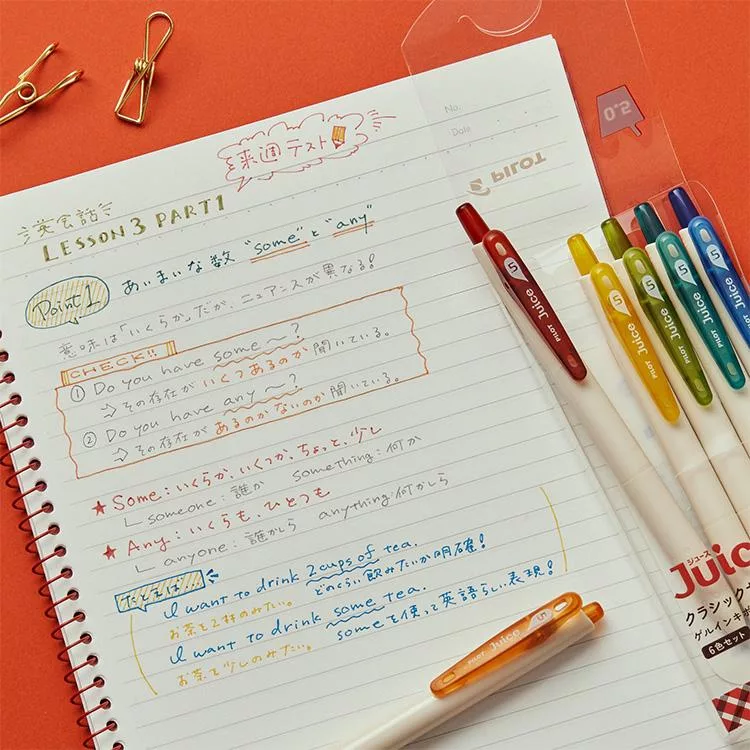 No.
Date
0.5
PILOT
来週テスト
英会話
LESSON 3 PART1
Point 1
あいまいな数 "some" と "any"
意味は「いくらか」だが、ニュアンスが異なる!
CHECK!!
① Do you have some ～?
⇒ その存在がいくつあるのか聞いている。
② Do you have any ～?
⇒ その存在があるのかないのか聞いている。
★ Some: いくらか、いくつか、ちょっと、少し
someone: 誰か something: 何か
★ Any: いくらも、ひとつも
anyone: 誰かしら anything: 何かしら
たとえば、
I want to drink 2cups of tea.
お茶を2杯のみたい。 どのくらい飲みたいか明確!
I want to drink some tea.
お茶を少しのみたい。 someを使って英語らしい表現!
PILOT Juice 5
PILOT Juice 5
PILOT Juice 5
PILOT Juice 5
PILOT Juice 5
PILOT Juice 5
ジュース
Juic
クラシック
ゲルインキ
6色セット